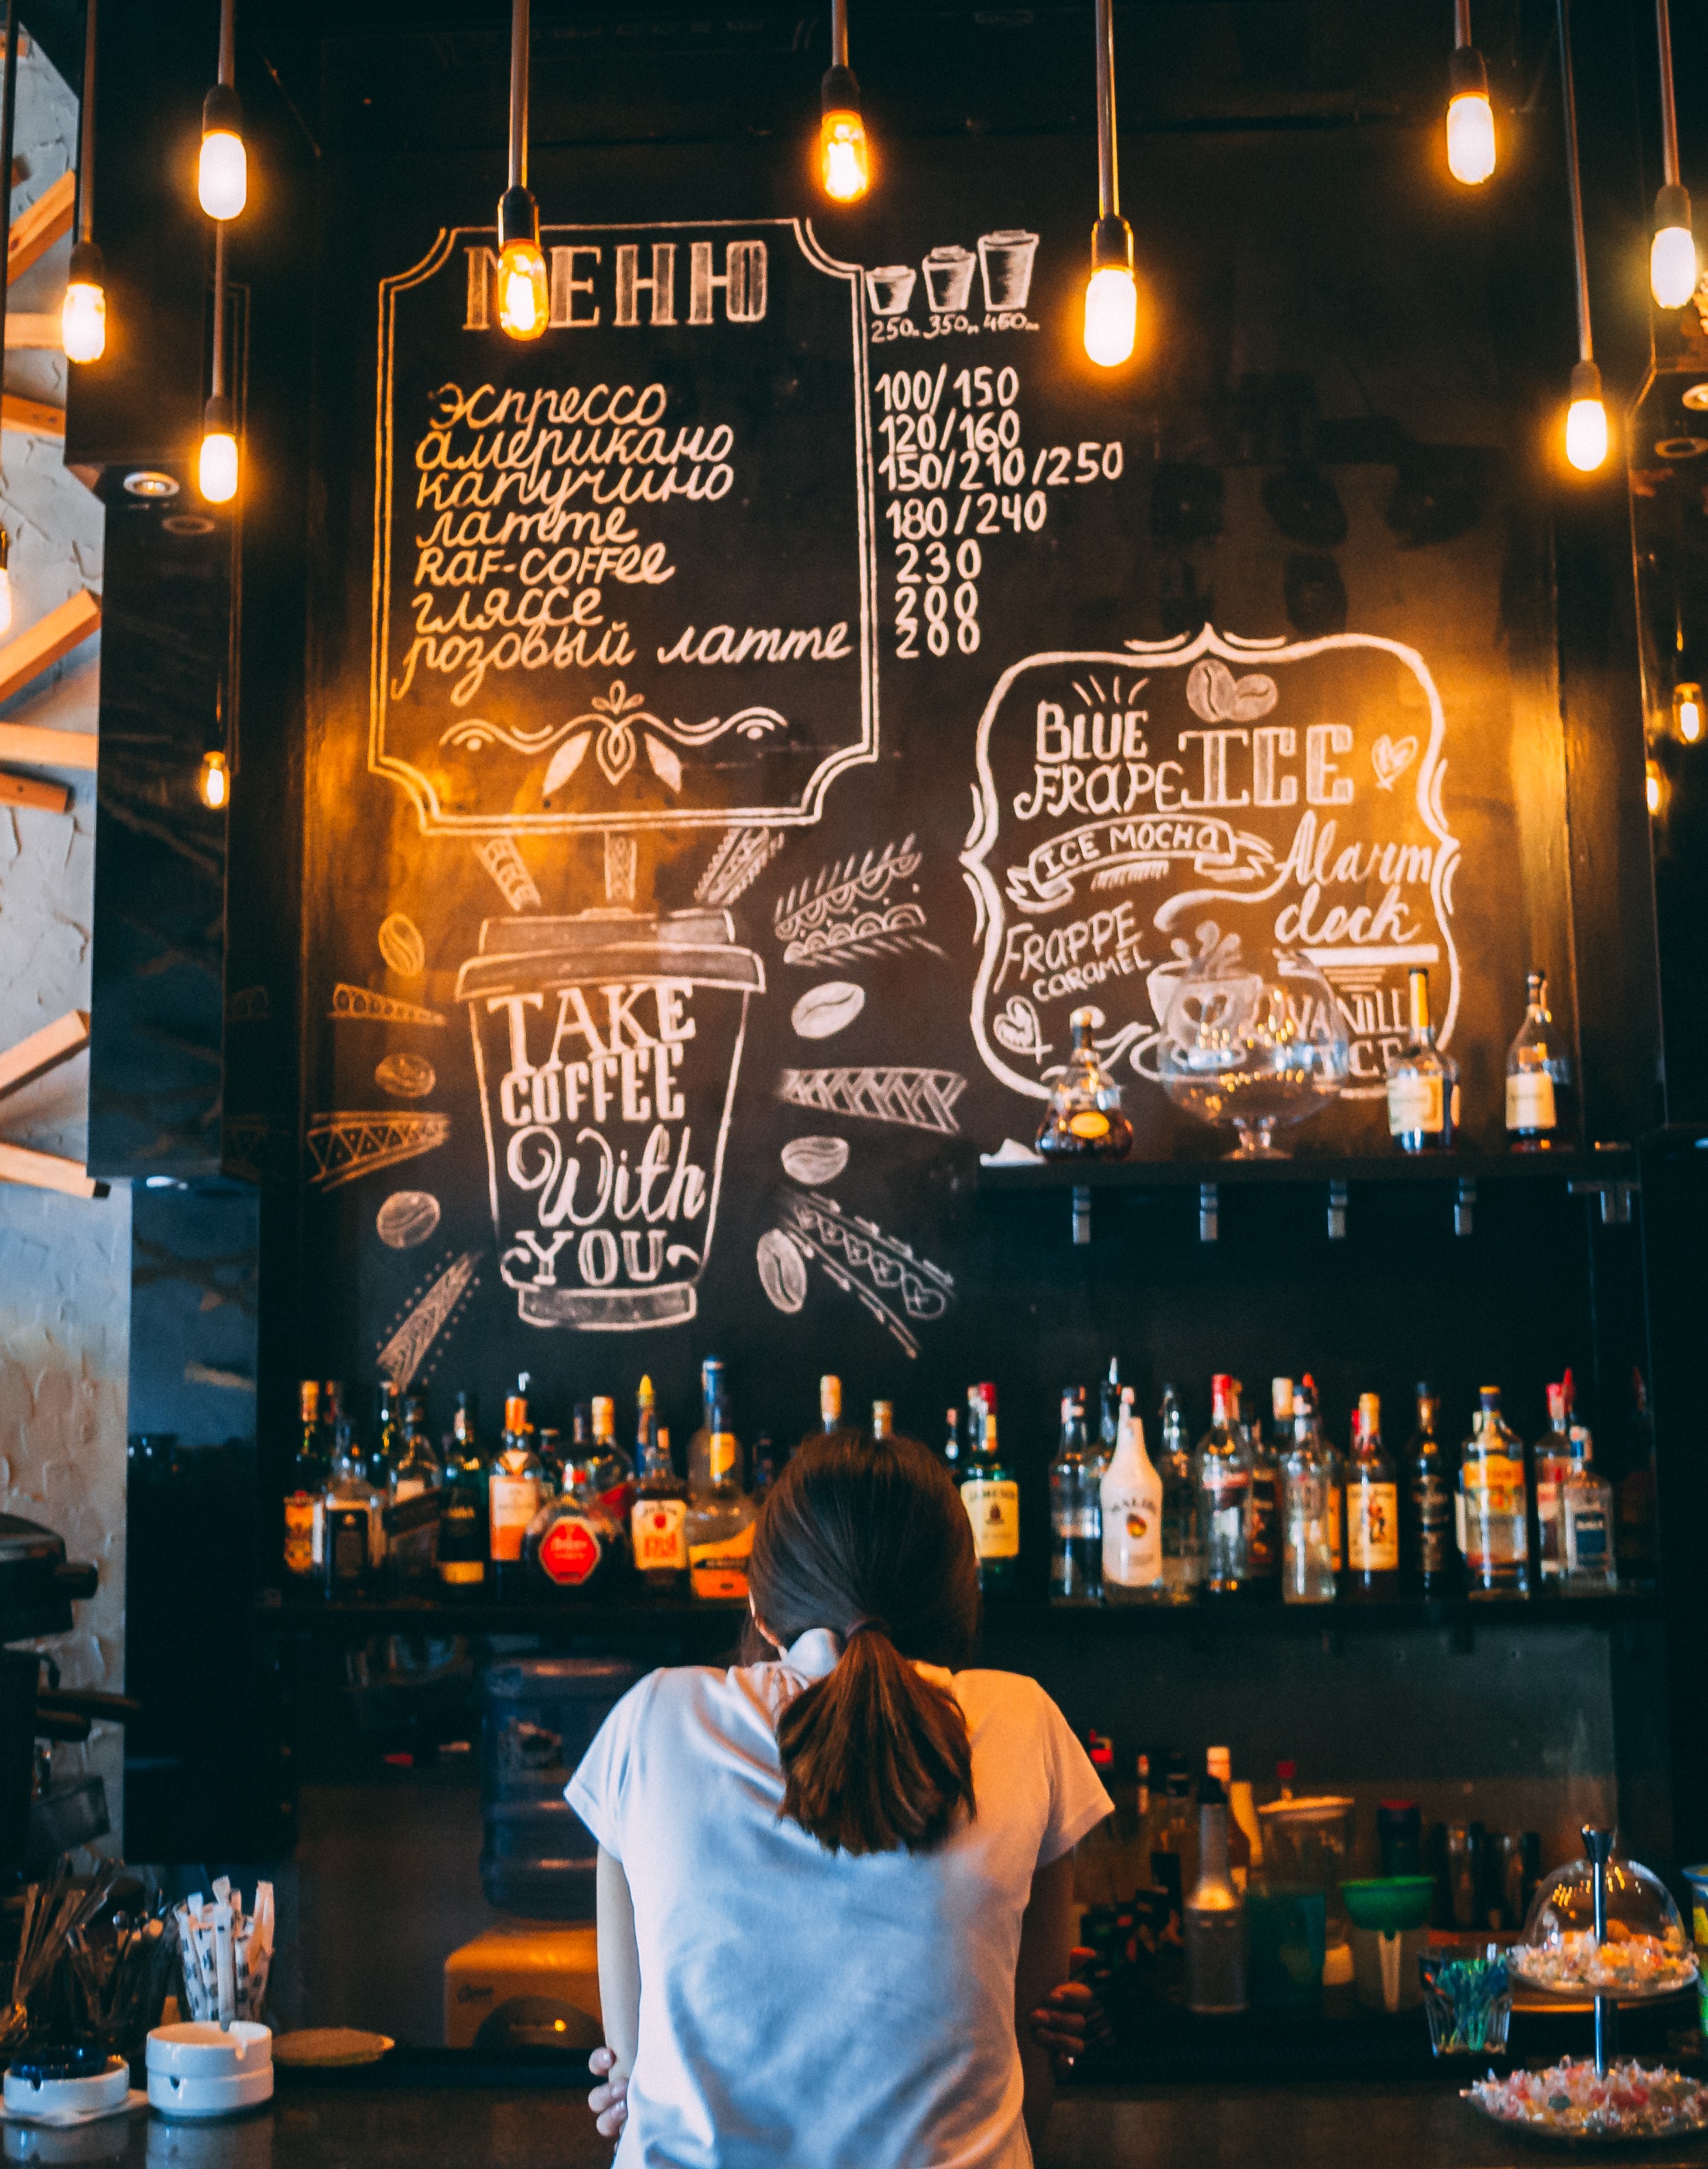 МЕНЮ
250мл 350мл 450мл
эспрессо 100/150
американо 120/160
капучино 150/210/250
латте 180/240
RAF-COFFEE 230
гляссе 200
розовый латте 200
BLUE
FRAPE ICE
ICE MOCHA
Alarm
deck
FRAPPE
CARAMEL
VANILL
ICE
TAKE
COFFEE
With
YOU
JAMESON
MALIBU